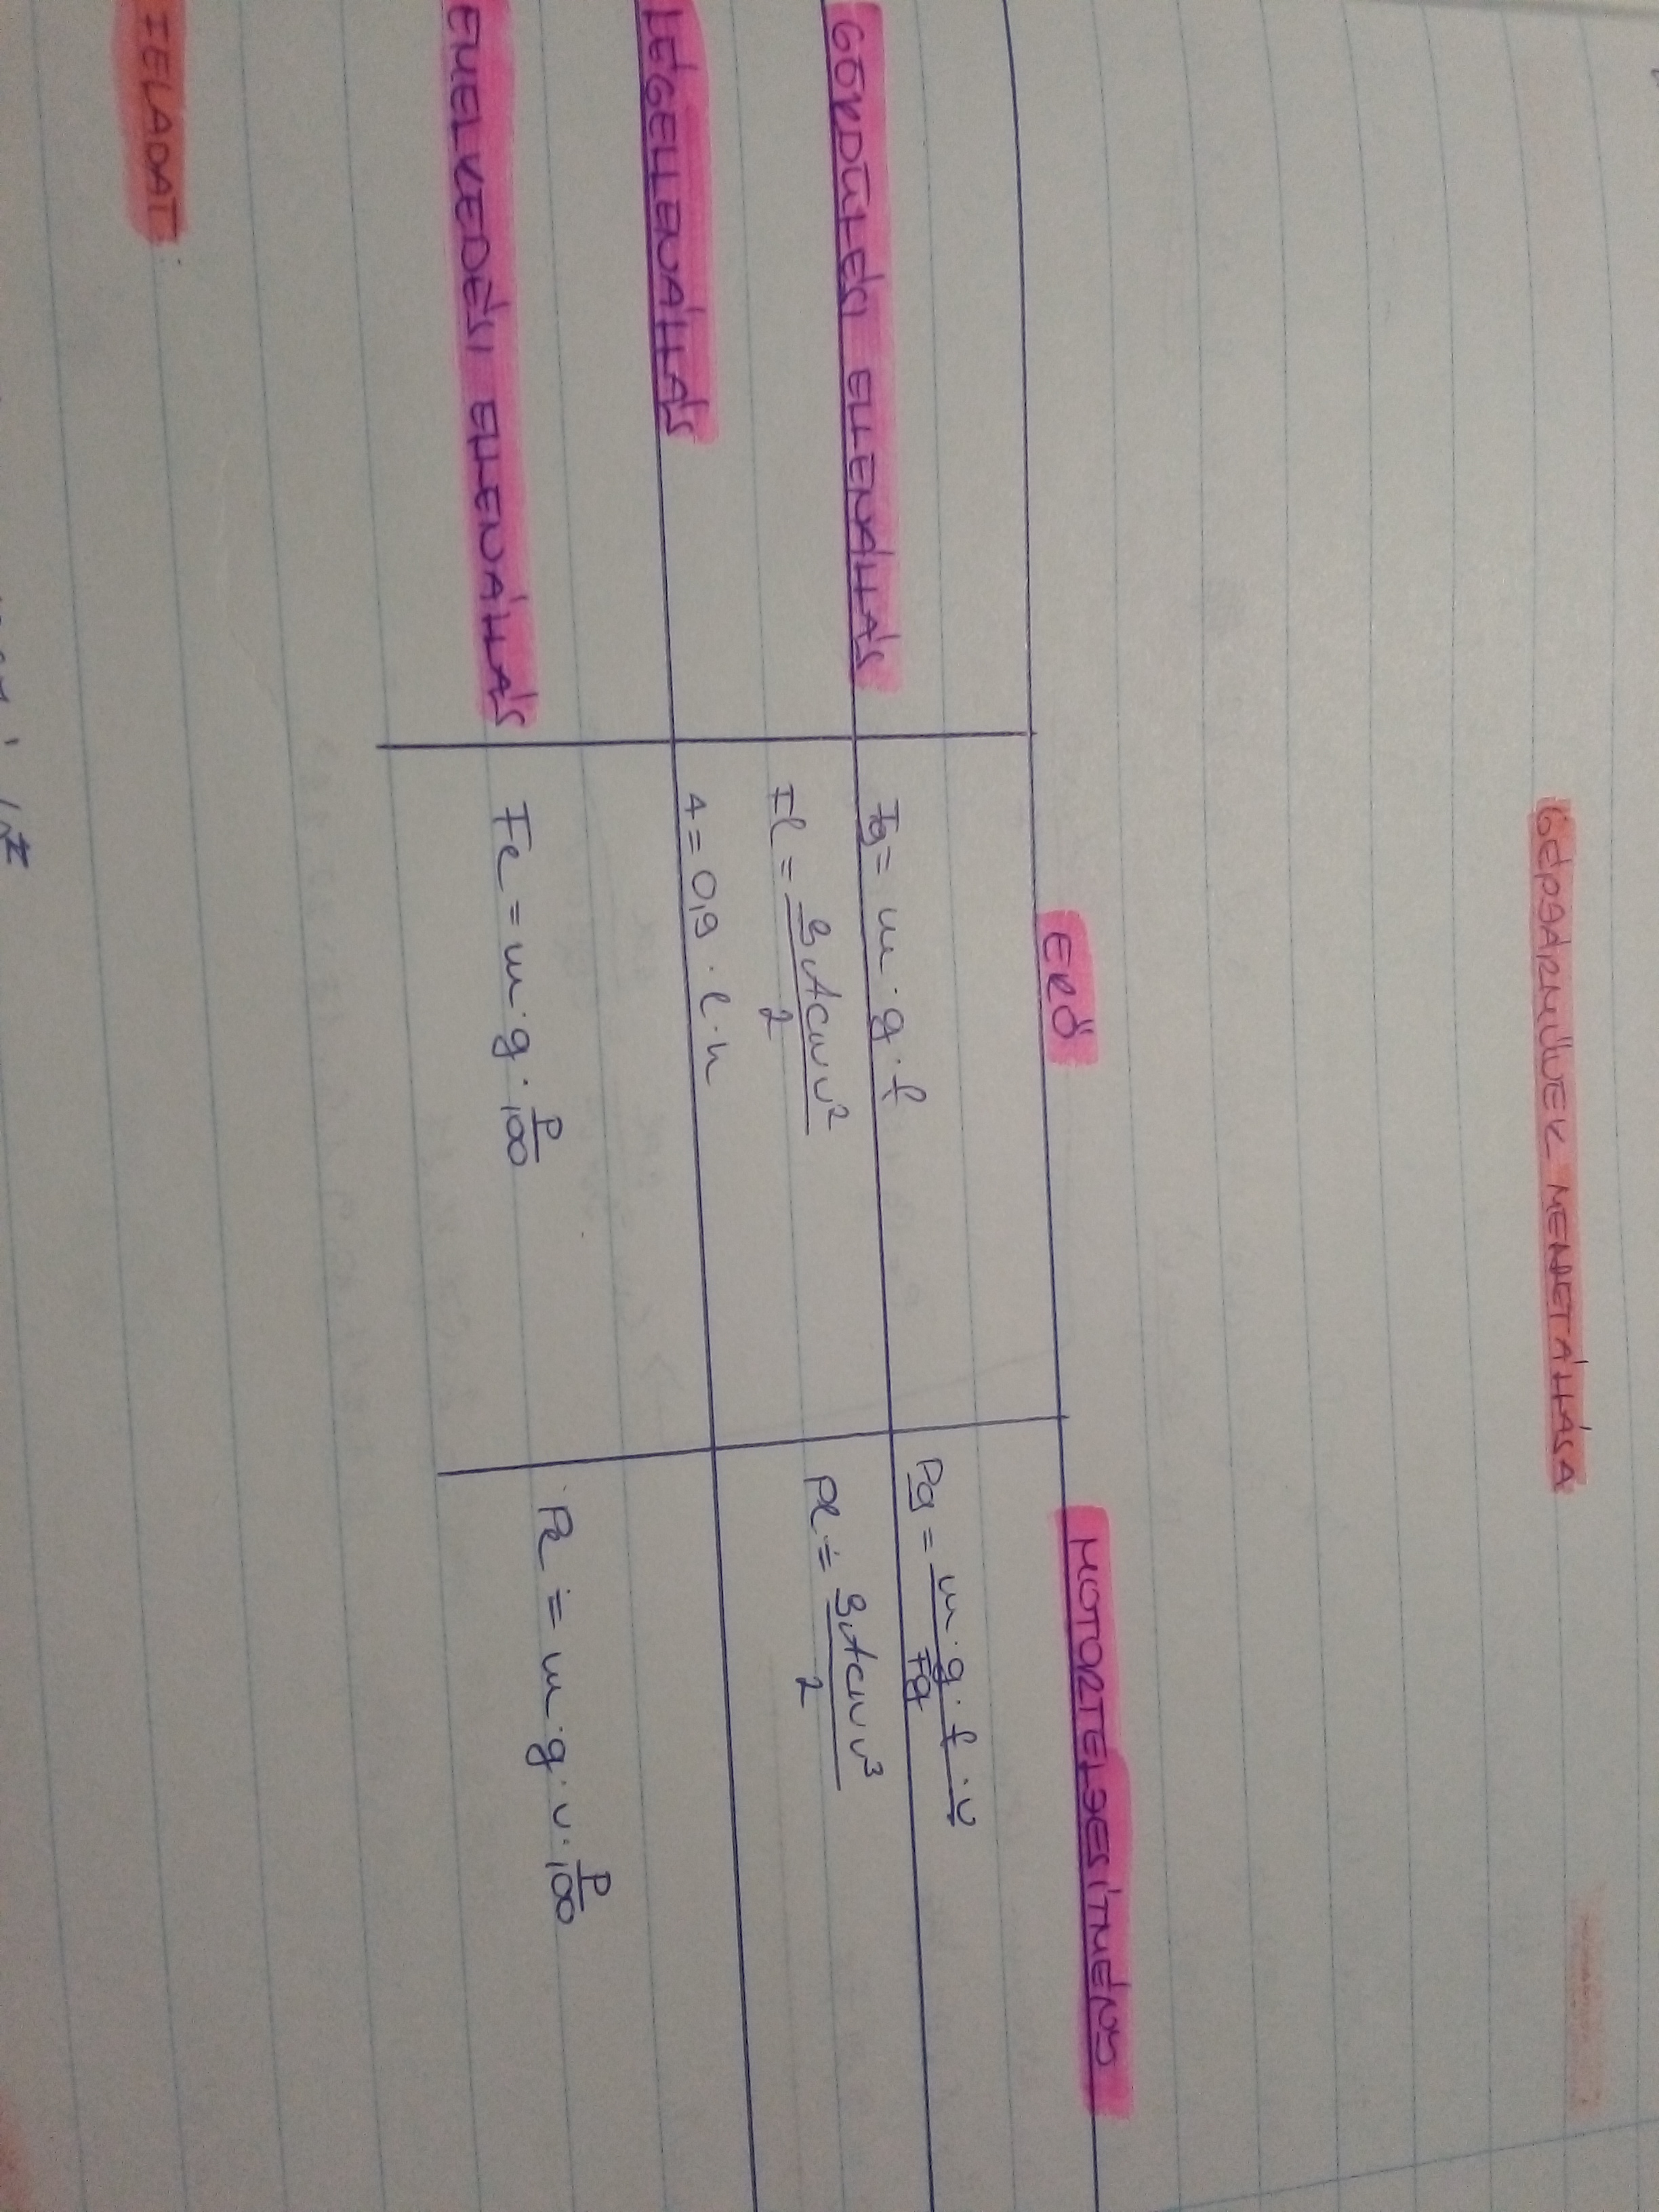 GÉPJÁRMŰVEK MENETÁLLÁSA
ERŐ MOTORTELJESÍTMÉNY
GÖRDÜLÉSI ELLENÁLLÁS Fg = m · g · f Pg = m · g · f · v
Fg
LÉGELLENÁLLÁS Fl = ρ A cw v² / 2 Pl = ρ A cw v³ / 2
A = 0,9 · l · h
EMELKEDÉSI ELLENÁLLÁS Fe = m · g · p/100 Pe = m · g · v · p/100
FELADAT: